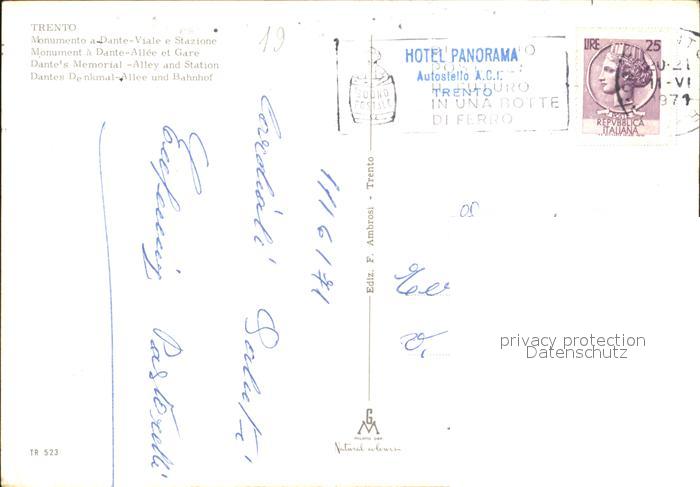 TRENTO
Monumento a Dante-Viale e Stazione
Monument à Dante-Allée et Gare
Dante's Memorial -Alley and Station
Dantes Denkmal-Allee und Bahnhof
19
HOTEL PANORAMA
Autostello A.C.I.
TRENTO
BUONO
POSTALE
FUTURO
IN UNA BOTTE
DI FERRO
LIRE 25
POSTE
REPVBBLICA
ITALIANA
11-VI
1971
11/6/71
Cordiali Saluti
Pastorelli
Ediz. F. Ambrosi - Trento
privacy protection
Datenschutz
GM
MILANO DEP.
Natural colours
TR 523